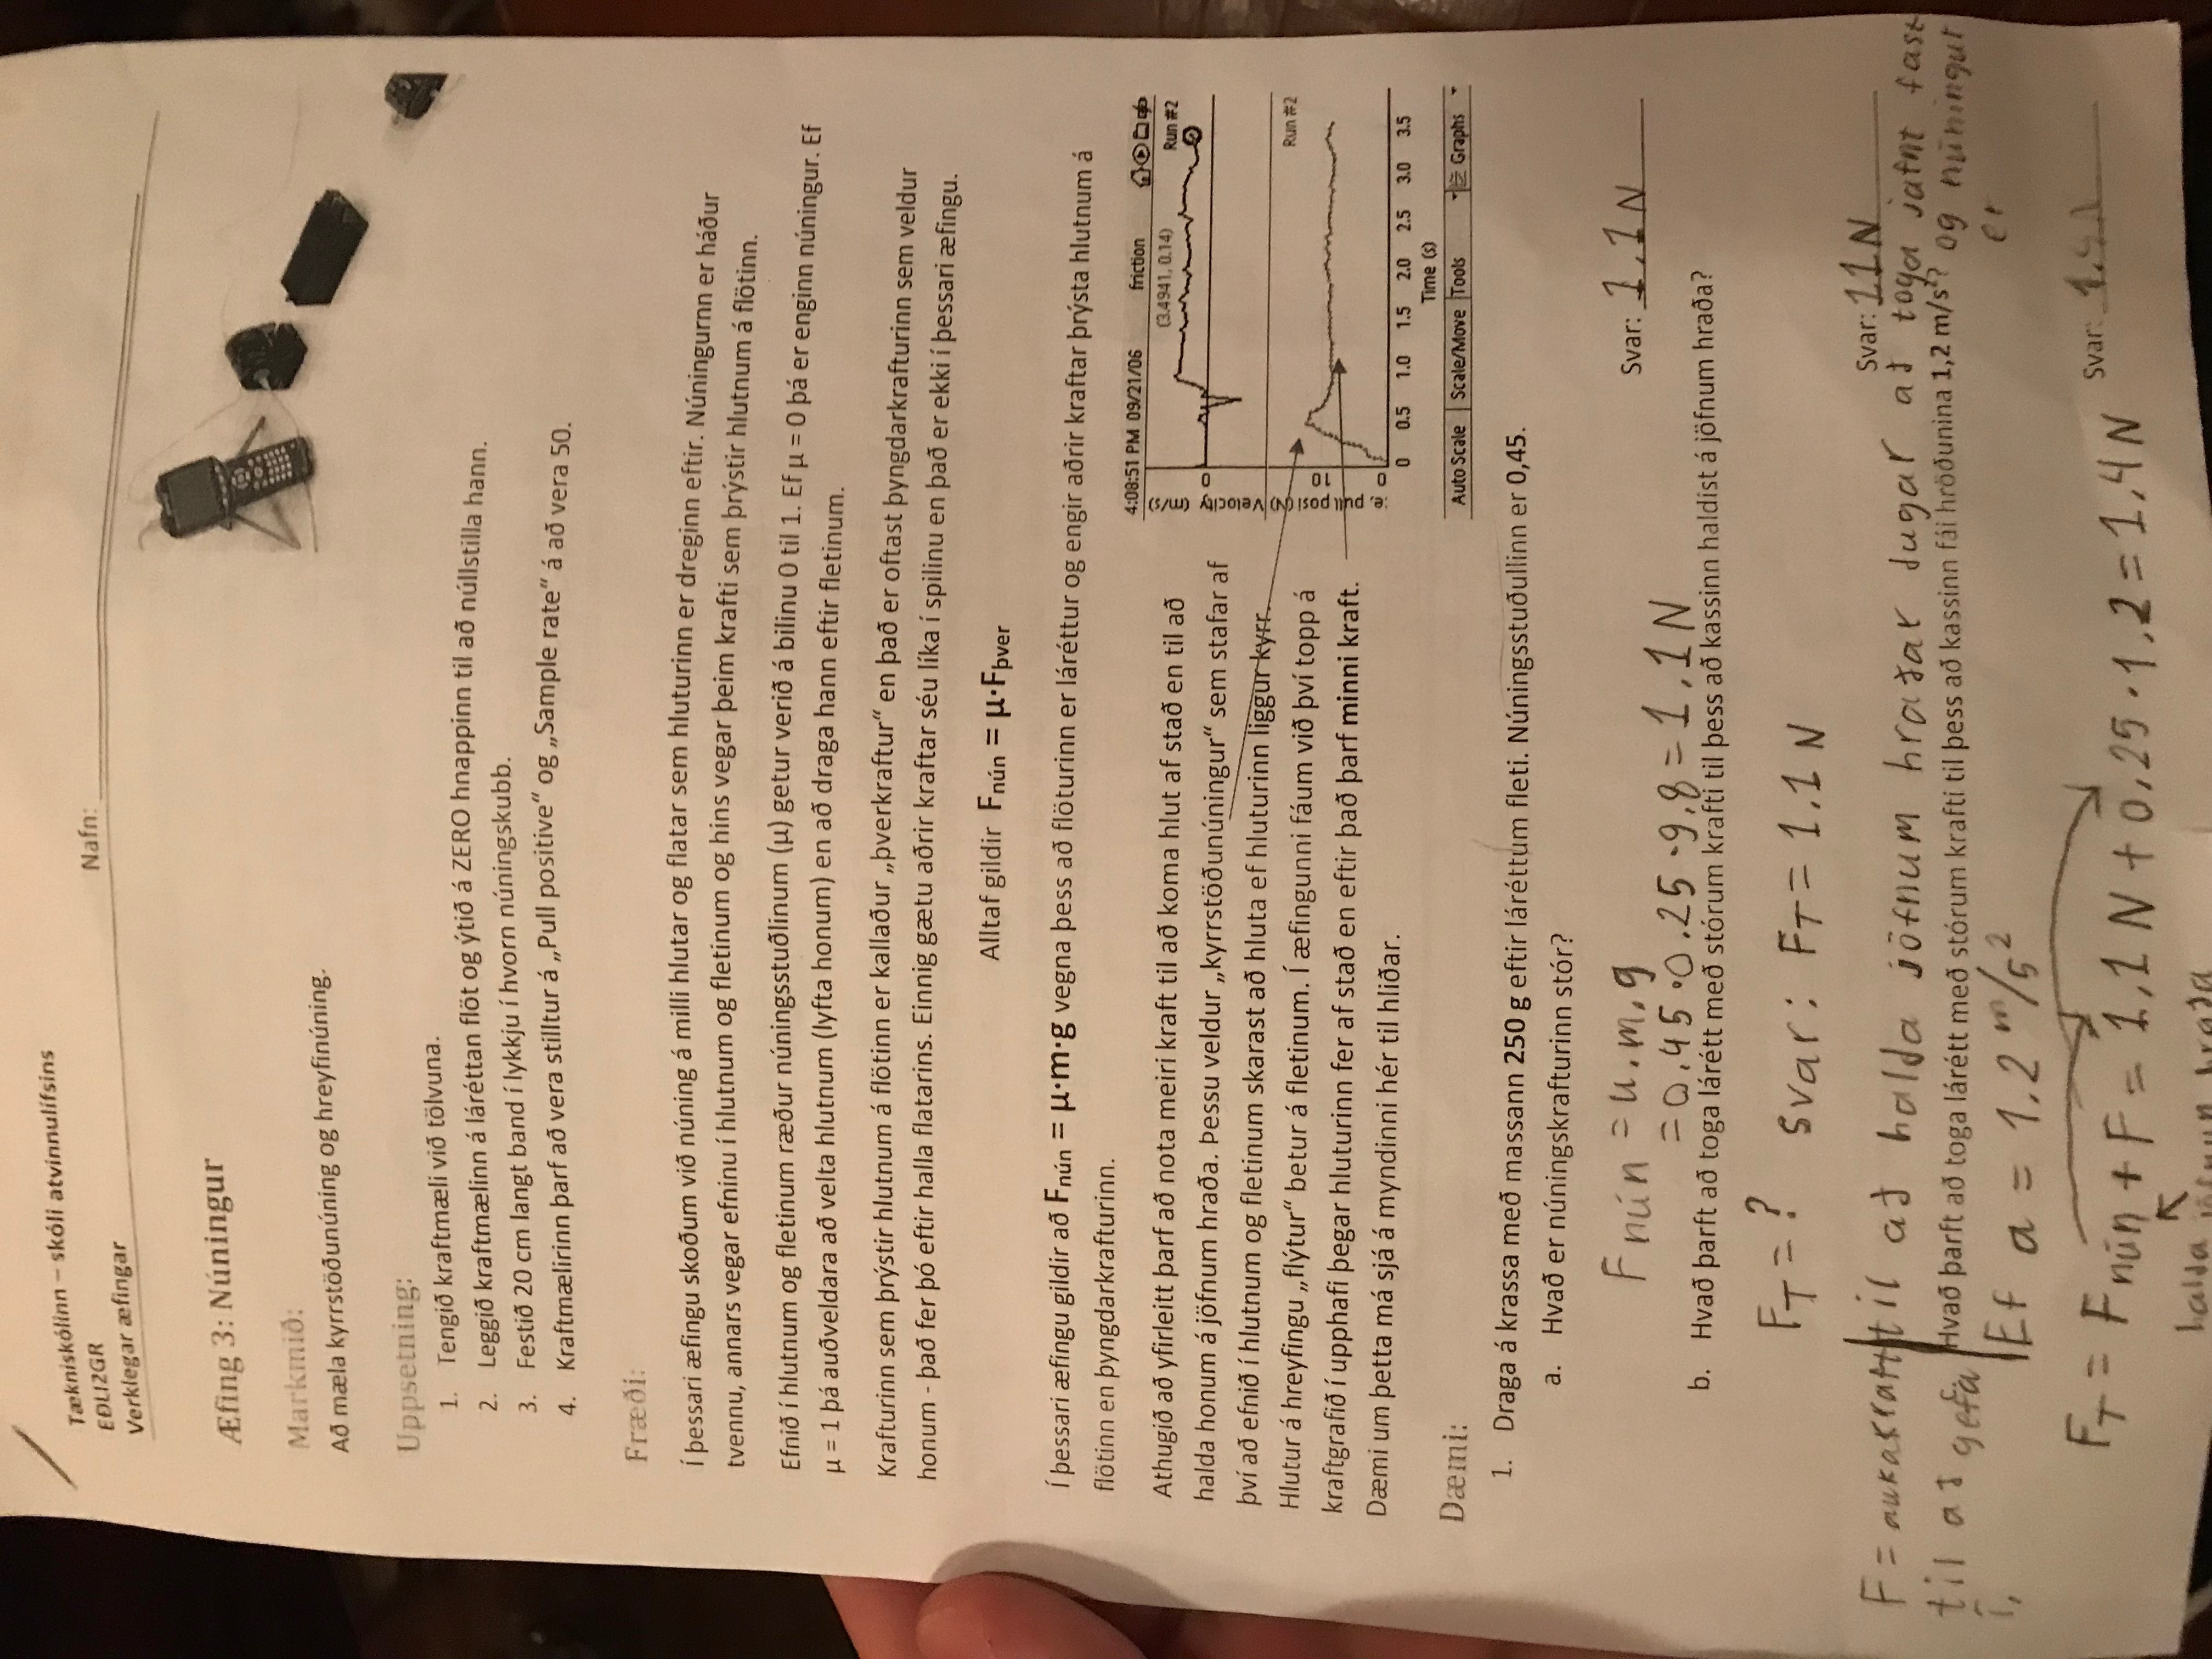 Tækniskólinn – skóli atvinnulífsins
EÐLI2GR
Verklegar æfingar
Nafn:
Æfing 3: Núningur
Markmið:
Að mæla kyrrstöðunúning og hreyfinúning.
Uppsetning:
1. Tengið kraftmæli við tölvuna.
2. Leggið kraftmælinn á láréttan flöt og ýtið á ZERO hnappinn til að núllstilla hann.
3. Festið 20 cm langt band í lykkju í hvorn núningskubb.
4. Kraftmælirinn þarf að vera stilltur á „Pull positive“ og „Sample rate“ á að vera 50.
Fræði:
Í þessari æfingu skoðum við núning á milli hlutar og flatar sem hluturinn er dreginn eftir. Núningurnn er háður
tvennu, annars vegar efninu í hlutnum og fletinum og hins vegar þeim krafti sem þrýstir hlutnum á flötinn.
Efnið í hlutnum og fletinum ræður núningsstuðlinum (μ) getur verið á bilinu 0 til 1. Ef μ = 0 þá er enginn núningur. Ef
μ = 1 þá auðveldara að velta hlutnum (lyfta honum) en að draga hann eftir fletinum.
Krafturinn sem þrýstir hlutnum á flötinn er kallaður „þverkraftur“ en það er oftast þyngdarkrafturinn sem veldur
honum - það fer þó eftir halla flatarins. Einnig gætu aðrir kraftar séu líka í spilinu en það er ekki í þessari æfingu.
Alltaf gildir Fnún = μ·Fþver
Í þessari æfingu gildir að Fnún = μ·m·g vegna þess að flöturinn er láréttur og engir aðrir kraftar þrýsta hlutnum á
flötinn en þyngdarkrafturinn.
Athugið að yfirleitt þarf að nota meiri kraft til að koma hlut af stað en til að
halda honum á jöfnum hraða. Þessu veldur „kyrrstöðunúningur“ sem stafar af
því að efnið í hlutnum og fletinum skarast að hluta ef hluturinn liggur kyrr.
Hlutur á hreyfingu „flýtur“ betur á fletinum. Í æfingunni fáum við því topp á
kraftgrafið í upphafi þegar hluturinn fer af stað en eftir það þarf minni kraft.
Dæmi um þetta má sjá á myndinni hér til hliðar.
4:08:51 PM 09/21/06 friction
(3.4941, 0.14) Run #2
Velocity (m/s)
0
Run #2
:e, pull posi (N)
10
0
0 0.5 1.0 1.5 2.0 2.5 3.0 3.5
Time (s)
Auto Scale Scale/Move Tools Graphs
Dæmi:
1. Draga á krassa með massann 250 g eftir láréttum fleti. Núningsstuðullinn er 0,45.
a. Hvað er núningskrafturinn stór?
Fnún = u.m.g
Svar: 1.1 N
= 0,45 · 0.25 · 9,8 = 1,1 N
b. Hvað þarft að toga lárétt með stórum krafti til þess að kassinn haldist á jöfnum hraða?
FT = ? svar: FT = 1.1 N
Svar: 11 N
F = aukakraft til að halda jöfnum hraðar dugar að toga jafnt fast
til að gefa Hvað þarft að toga lárétt með stórum krafti til þess að kassinn fái hröðunina 1,2 m/s²? og núningur
er
Ef a = 1.2 m/s²
Svar:
FT = Fnún + F = 1,1 N + 0,25 · 1,2 = 1,4 N
halda jöfnun hraða